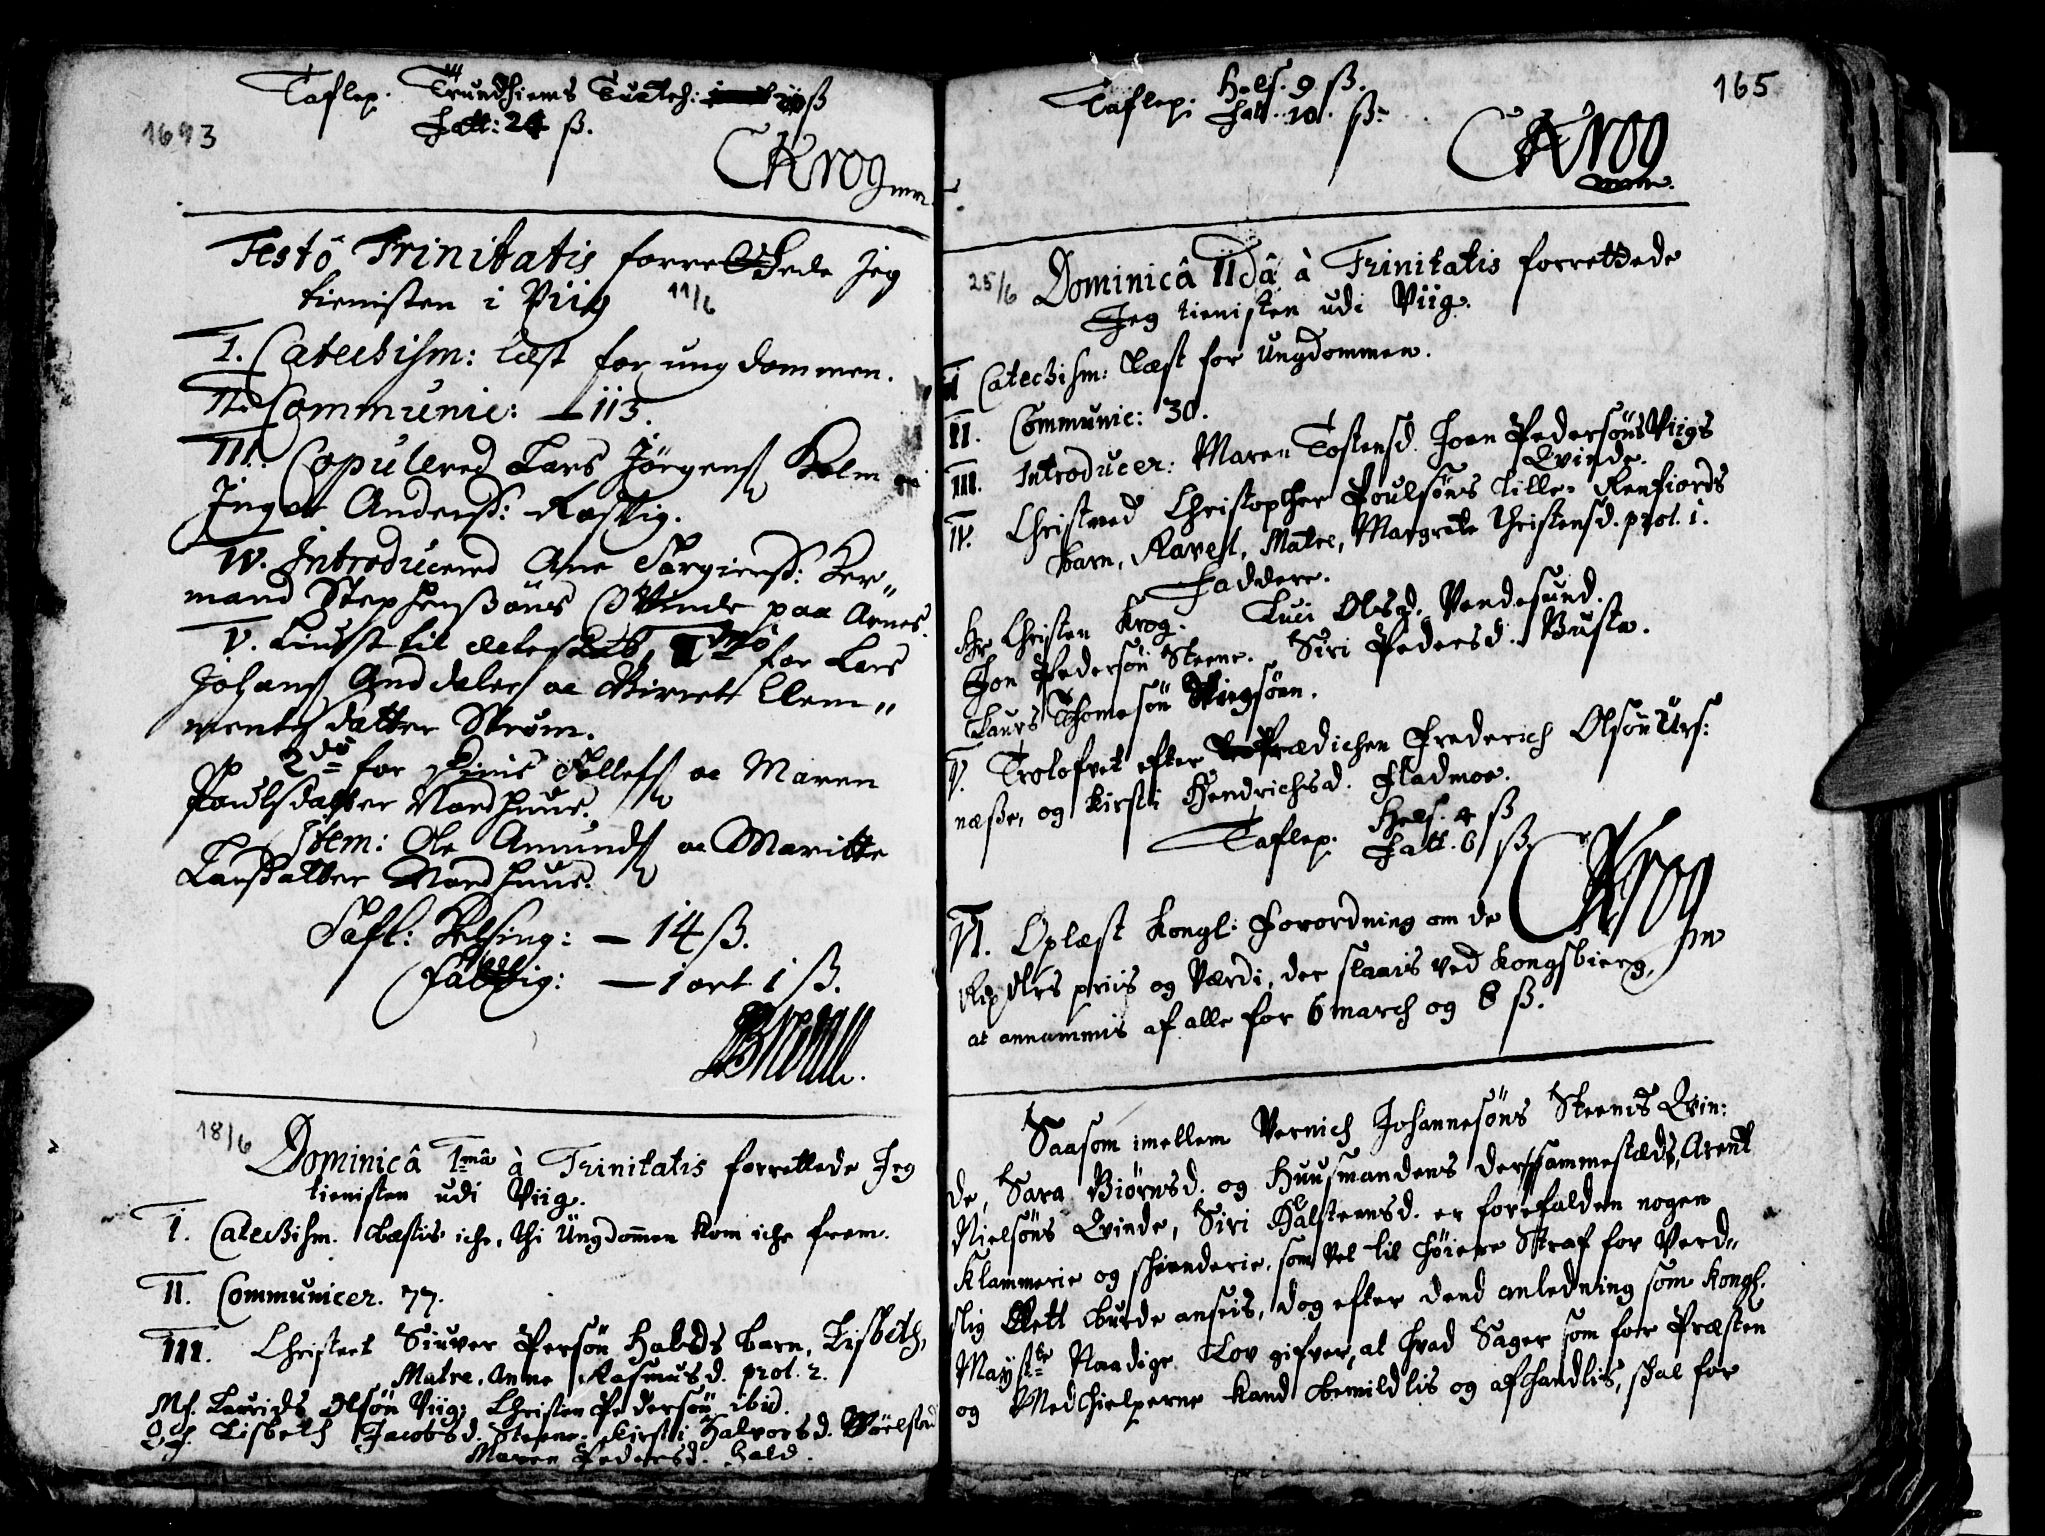 Taflep. Trundhiems Tuctch: 20 ß
fatt: 24 ß.
1693
CKrog
Festo Trinitatis forrettede Jeg
tienisten i Viig 11/6
I. Catechism: læst for ungdommen.
II. Communic: — 113.
III. Copulered Lars Jörgens Holm oc
Inger Anderss:
IV. Introducered Ane Torgierss: Her„
mand Stephenssöns Qvinde paa Arnes.
V. Liust til echteskab, 1mo for Lars
Johans oc Birret Clem„
mentsdatter Ström.
2do for Tollefs oc Maren
Poulsdatter Nordhuus.
Item: Ole Amunds oc Maritte
Larsdatter Nordhuus.
Tafl: Helsing: — 14 ß.
Fattig: — 1 ort 1 ß.
18/6 Dominicâ 1mâ à Trinitatis forrettede Jeg
tienisten udi Viig.
I. Catechism. læstis iche, thi Ungdommen kom iche frem.
II. Communicer. 77.
III. Christnet Siuver Persön Halds barn, Lisbeth,
Matre, Anne Rasmusd. prol. 2.
Mf. Laurids Olsön Viig, Christen Pedersön ibid.
Qf. Lisbeth Jacobsd. Steene, Kirsti Halvorsd. Möelstad
Maren Pedersd. Hald.
165
Taflep. Hels. 9 ß.
fatt. 10. ß
CKrog
25/6 Dominicâ IIdâ à Trinitatis forrettede
Jeg tienisten udi Viig.
I Catechism: læst for Ungdommen.
II. Communic: 30.
III. Introducer: Maren Tostensd. Joen Pedersöns Viigs
Qvinde.
IV. Christned Christopher Poulsöns Lille-Renfiords
barn, Karell, Matre, Margrete Christensd. prol. 1.
Faddere.
Hr Christen Krog. Luci Olsd. Vendesund.
Jon Pedersön Steene. Siri Pedersd. Busta.
Laurs Thomesön
V. Trolofvet efter Prædichen Frederich Olsön Urs:
næsse, og Kirsti Hendrichsd. Fladmoe.
Taflep. Hels. 4 ß
fatt. 6 ß
CKrog
VI. Oplæst Kongl: Forordning om de
Rixdlrs priis og Værdi, der slaais ved Kongsbierg,
at annammis af alle for 6 march og 8 ß.
Saasom imellem Vernich Johannesöns Steenes Qvin:
de, Sara Biörnsd. og Huusmandens dersammesteds, Arent
Nielsöns Qvinde, Siri Halsteensd. er forefalden nogen
Klammerie og schienderie, som vel til höiere Straf for Verd„
slig Rett burde ansees, dog efter dend anledning som Kongl.
Mayste Naadige Lov gifver, at hvad Sager som for Præsten
og Medhielperne kand bemildlis og afhandlis, skal for